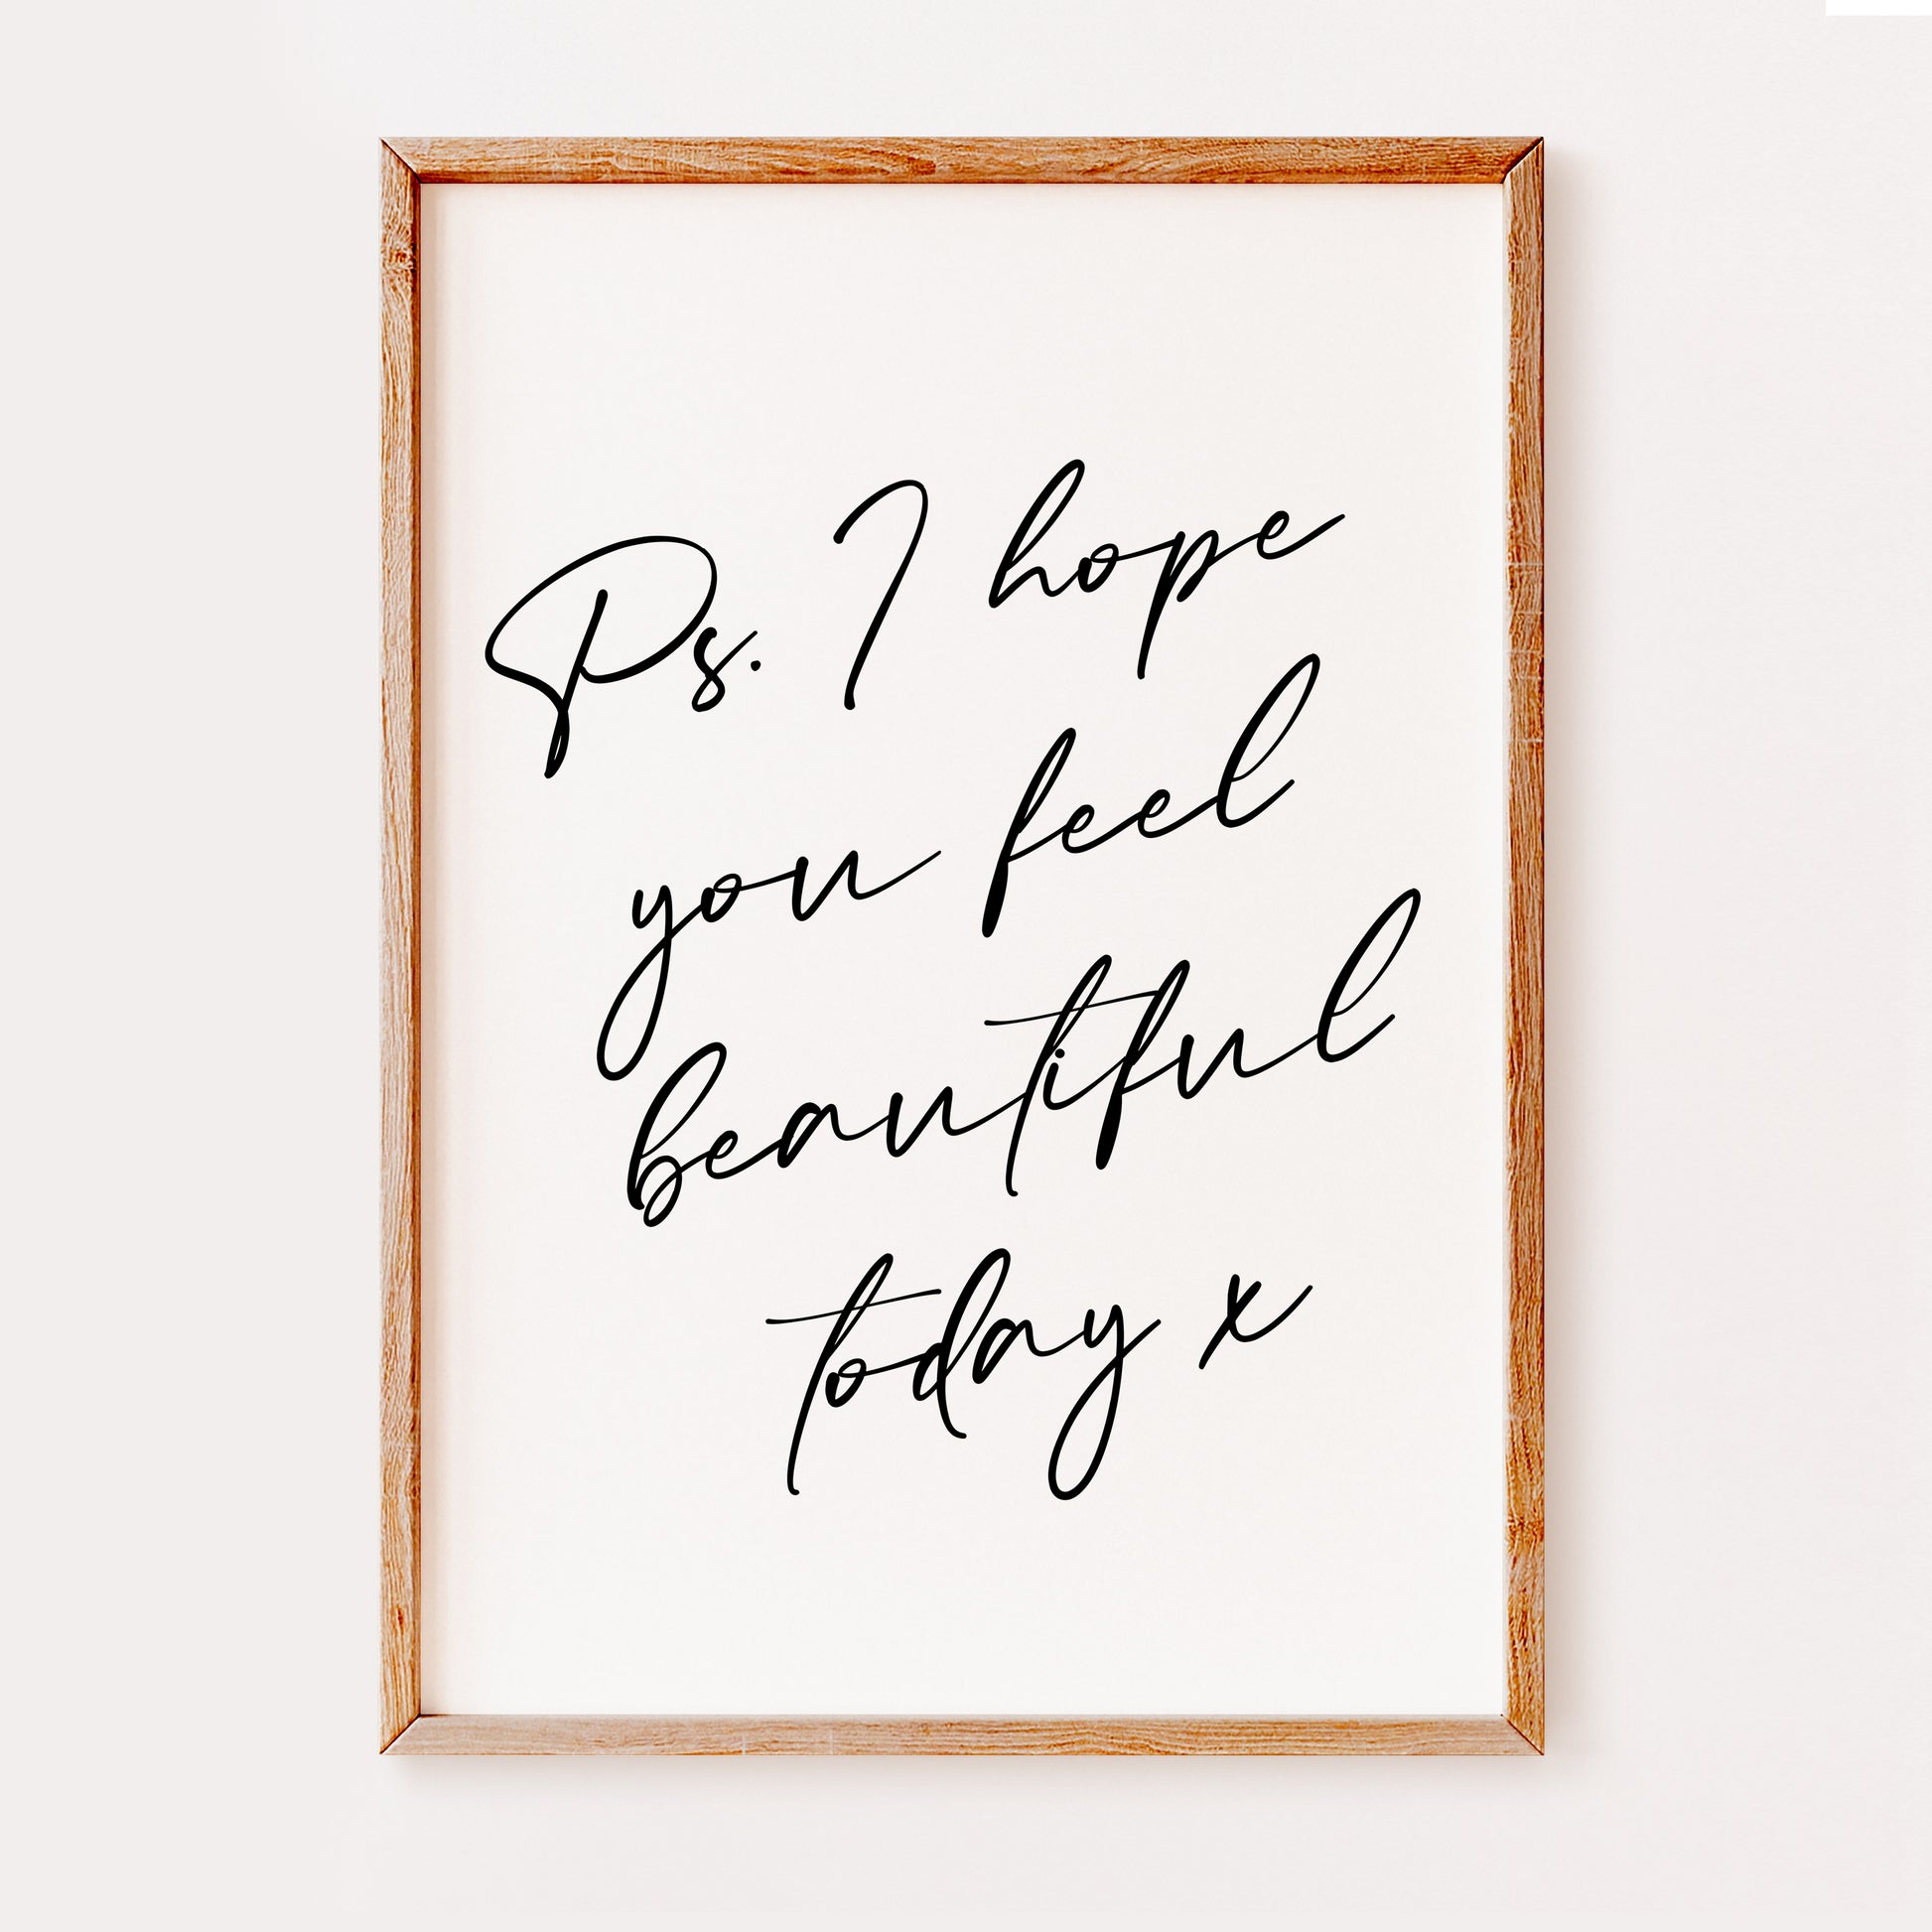 Ps. I hope
you feel
beautiful
today x